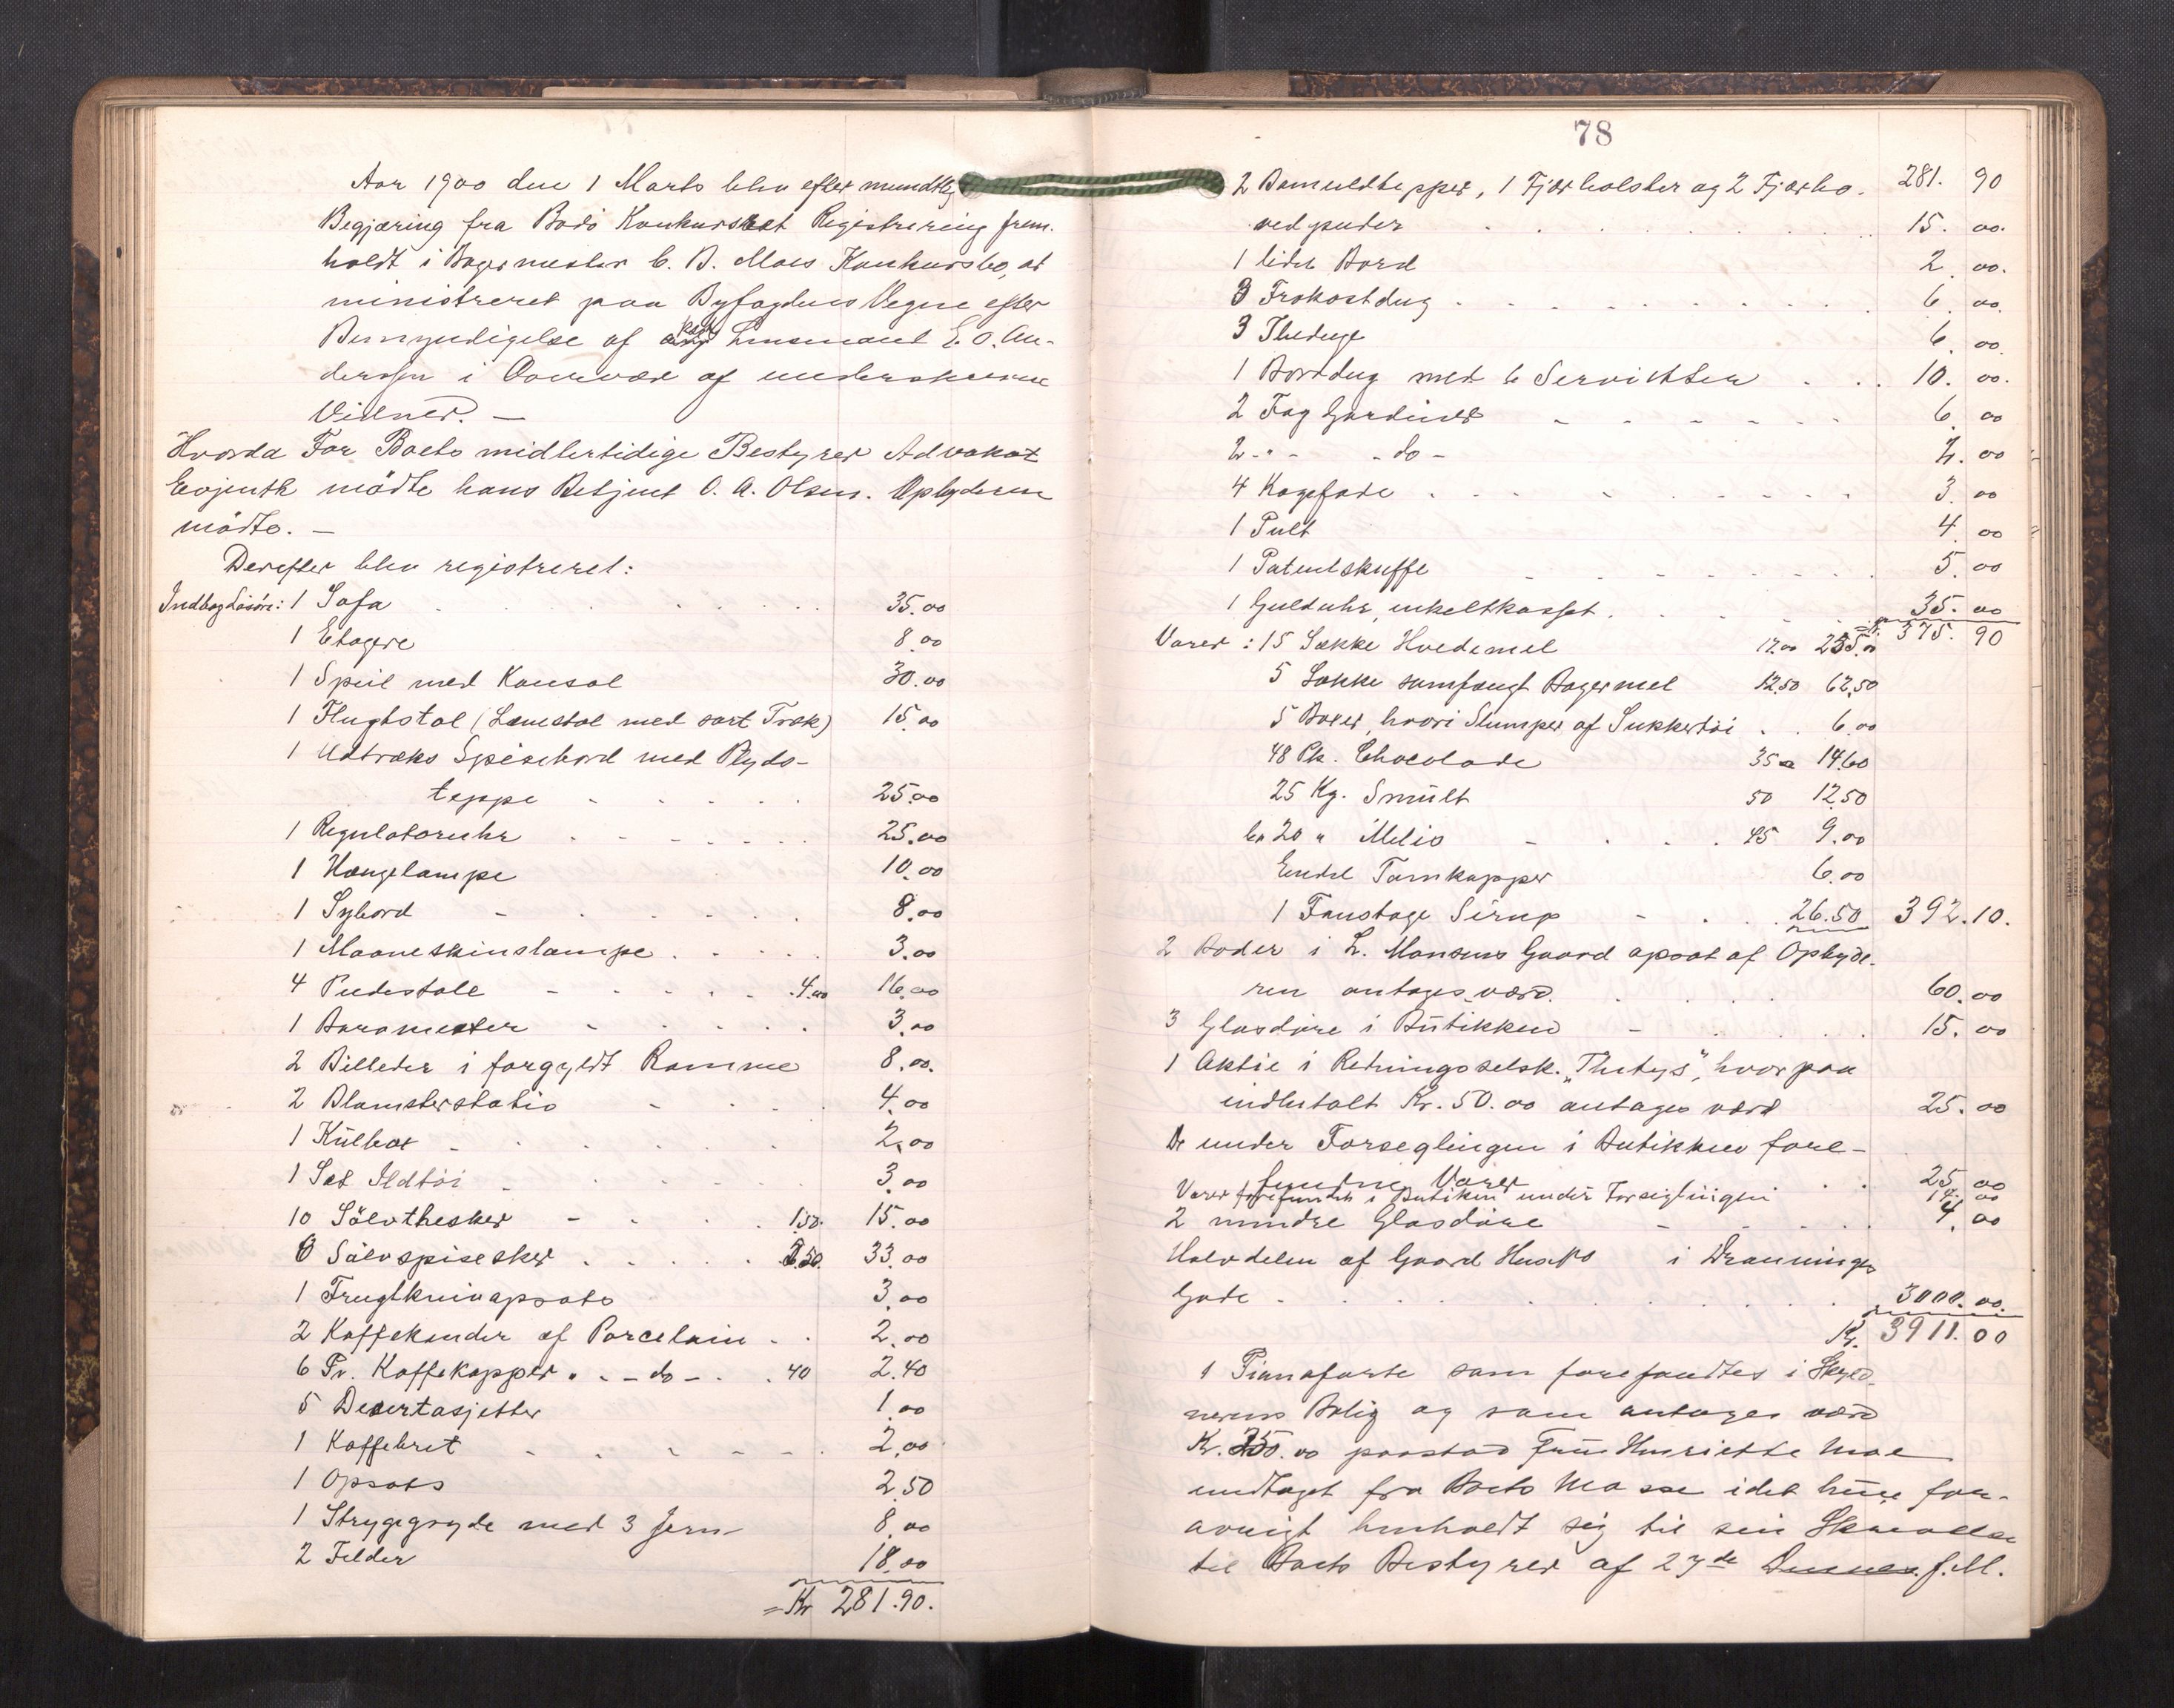 Aar 1900 den 1 Marts blev efter mundtlig
Begjæring fra Bodö Konkursret Registrering frem.
holdt i Bagermester C. B. Moes Konkursbo, ad
ministreret paa Byfogdens Vegne efter
Bemyndigelse af Lensmand E. O. An-
derssen i Overvær af underskrevne
Vidner. —
Hvorda For Boets midlertidige Bestyrer Advokat
Evjenth mödte hans Betjent O. A. Olsen. Opbyderen
mödte. —
Derefter blev registreret:
Indbog Lösöre: 1 Sofa 35.00
1 Etagere 8.00
1 Speil med Konsol 30.00
1 Flugtstol (Lænestol med sort Træk) 15.00
1 Udtræks Spisebord med Plyds-
teppe 25.00
1 Regulatoruhr 25.00
1 Hængelampe 10.00
1 Sybord 8.00
1 Maaneskinslampe 3.00
4 Pidestale 4.00 16.00
1 Barometer 3.00
2 Billeder i forgyldt Ramme 8.00.
2 Blomsterstativ 4.00
1 Külbox 2.00
1 Set Ildtöi 3.00
10 Sölvtheskeer 1.50. 15.00
6 Sölvspiseskeer 5.50. 33.00
1 Frugtknivopsats 3.00
2 Kaffekander af Porcelain 2.00
6 Pr. Kaffekopper " - do - 40 2.40
5 Desertasjetter 1.00
1 Kaffebret 2.00
1 Opsats 2.50
1 Strygegryde med 3 Jern 8.00
2 Felder 18.00
= Kr 281.90.
78
2 Bomuldtepper, 1 Fjærbolster og 2 Fjærho- 281. 90
vedputer 15. 00.
1 lidet Bord 2. 00.
3 Frokostdug 6. 00.
3 Theduge 6. 00.
1 Borddug med 6 Servietten 10. 00.
2 Fag Gardiner 6. 00
2 - " - - do - 4. 00
4 Kagefade 3. 00
1 Pult 4. 00
1 Patentskuffe 5. 00
1 Gulduhr, enkeltkasset 35. 00
375. 90
Varer: 15 Sække Hvedemel 17.00 255.00
5 Sække samfængt Bagermel 12.50 62.50
5 Boxer, hvori Slumper af Sukkertöi 6.00
48 Pk. Chocolade 35 14.60
25 Kg. Smült 50 12.50
ca 20 " Melis 45 9.00
Endel Tomkopper 6.00
1 Faustage Sirup 26.50 392.10.
2 Boder i L. Monsens Gaard opsat af Opbyde-
ren antages værd 60.00
3 Glasdöre i Bütikken 15. 00
1 Aktie i Redningsselsk. „Thetys", hvorpaa
indbetalt Kr. 50.00 antages værd 25. 00
De under Forseglingen i Butikken fore-
fundne Varer 25.00
Varer forefundet i Butiken under Forseiglingen 14.00
2 mindre Glasdöre 4.00
Halvdelen af Gaard Hus No i Dronningens
Gade 3000.00.
Kr. 3911.00
1 Pianoforte som forefandtes i Skyld-
nerens Bolig og som antages værd
Kr. 250.00 paastod Frü Henriette Moe
undtaget fra Boets Masse idet hün for-
övrigt henholdt sig til sin Skrivelse
til Boets Bestyrer af 27de f. M.